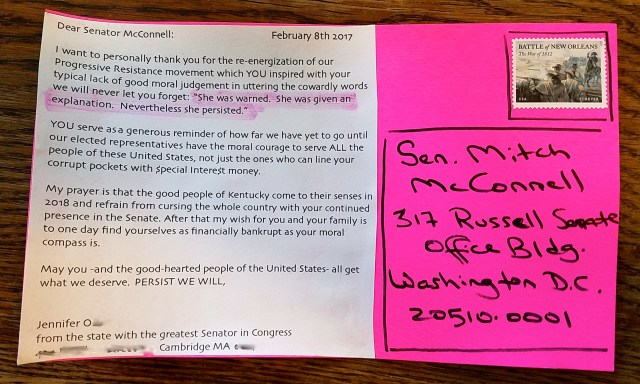 Dear Senator McConnell: February 8th 2017
I want to personally thank you for the re-energization of our
Progressive Resistance movement which YOU inspired with your
typical lack of good moral judgement in uttering the cowardly words
we will never let you forget: "She was warned. She was given an
explanation. Nevertheless she persisted."
YOU serve as a generous reminder of how far we have yet to go until
our elected representatives have the moral courage to serve ALL the
people of these United States, not just the ones who can line your
corrupt pockets with Special Interest money.
My prayer is that the good people of Kentucky come to their senses in
2018 and refrain from cursing the whole country with your continued
presence in the Senate. After that my wish for you and your family is
to one day find yourselves as financially bankrupt as your moral
compass is.
May you -and the good-hearted people of the United States- all get
what we deserve. PERSIST WE WILL,
Jennifer O
from the state with the greatest Senator in Congress
Cambridge MA
BATTLE of NEW ORLEANS
The War of 1812
USA FOREVER
Sen. Mitch
McConnell
317 Russell Senate
Office Bldg.
Washington D.C.
20510-0001